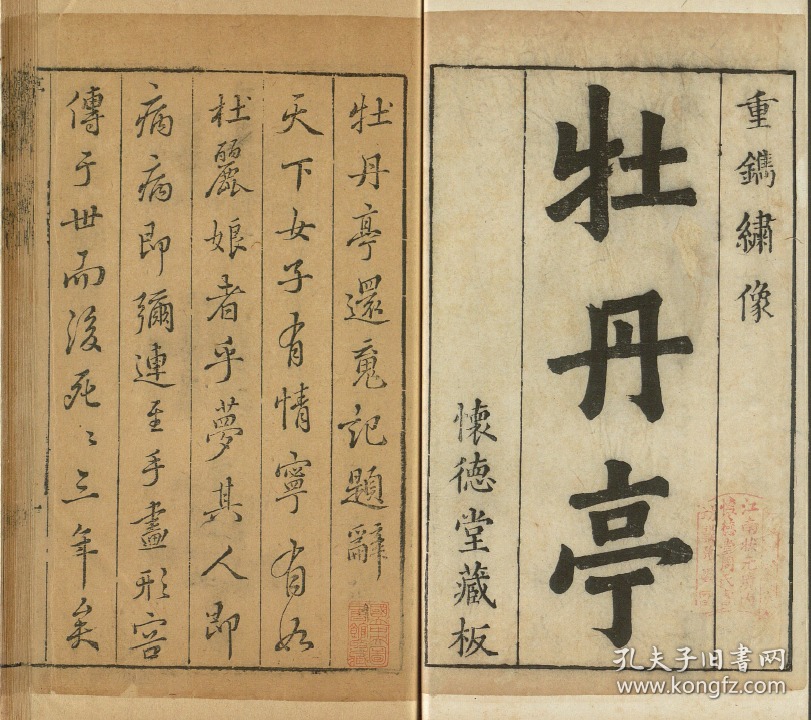 重鐫繡像
牡丹亭
懷德堂藏板
牡丹亭還魂記題辭
天下女子有情寧有如
杜麗娘者乎夢其人即
病病即彌連至手畫形容
傳于世而後死〻三年矣
孔夫子旧書网
www.kongfz.com